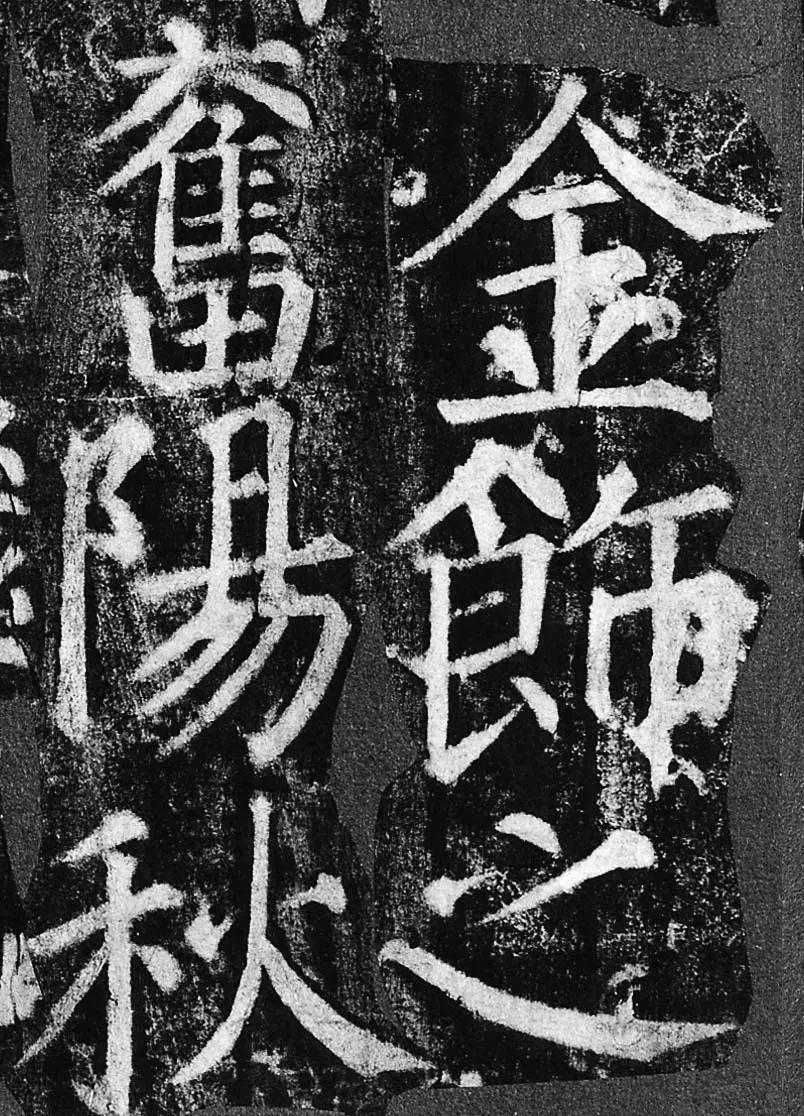 金飾之
奮陽秋